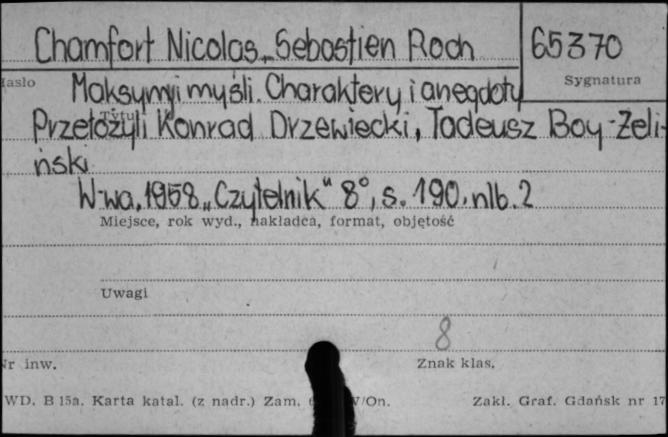 Chamfort Nicolas-Sebastien Roch 65370
Hasło Sygnatura
Maksymy i myśli. Charaktery i anegdoty
Tytuł
Przełożyli Konrad Drzewiecki, Tadeusz Boy-Żeli-
ński
W-wa. 1958 „Czytelnik" 8°, s. 190, nlb. 2
Miejsce, rok wyd., nakładca, format, objętość
Uwagi
8
Nr inw. Znak klas.
WD. B 15a. Karta katal. (z nadr.) Zam. V/On. Zakł. Graf. Gdańsk nr 17